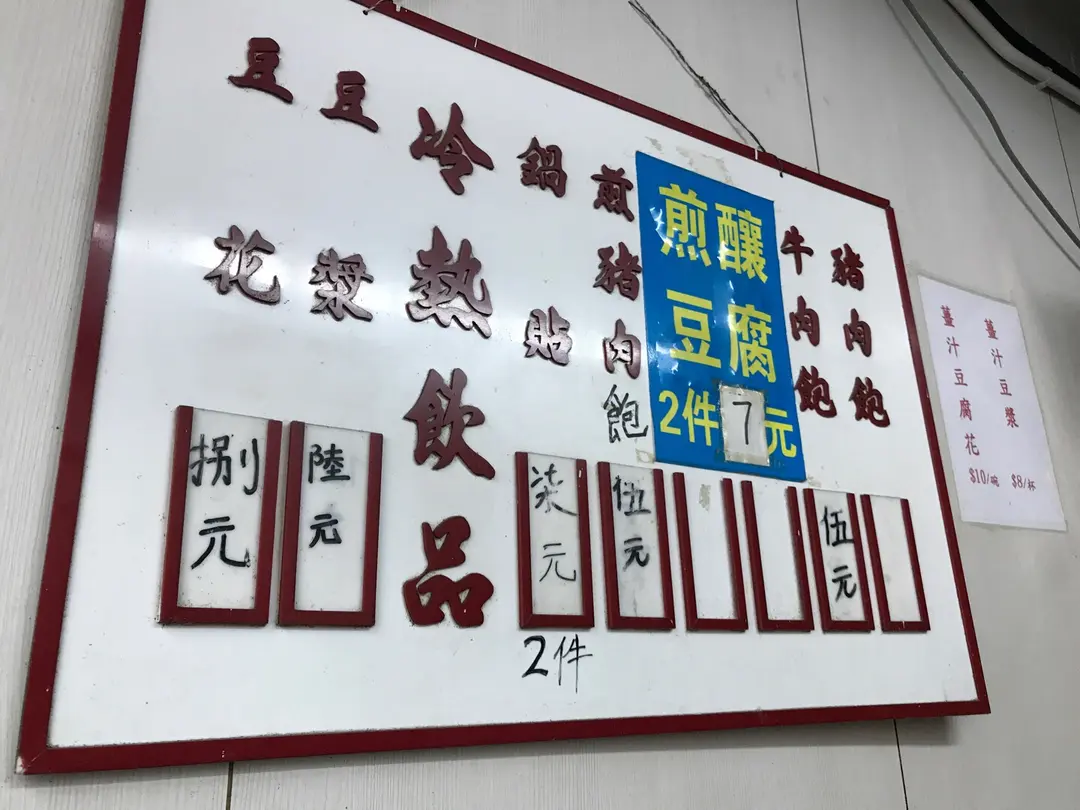 豬肉飽
牛肉飽
伍元
煎釀
豆腐
2件7元
煎豬肉飽
伍元
鍋貼
柒元
2件
冷熱飲品
豆漿
陸元
豆花
捌元
薑汁豆漿 $8/杯
薑汁豆腐花 $10/碗